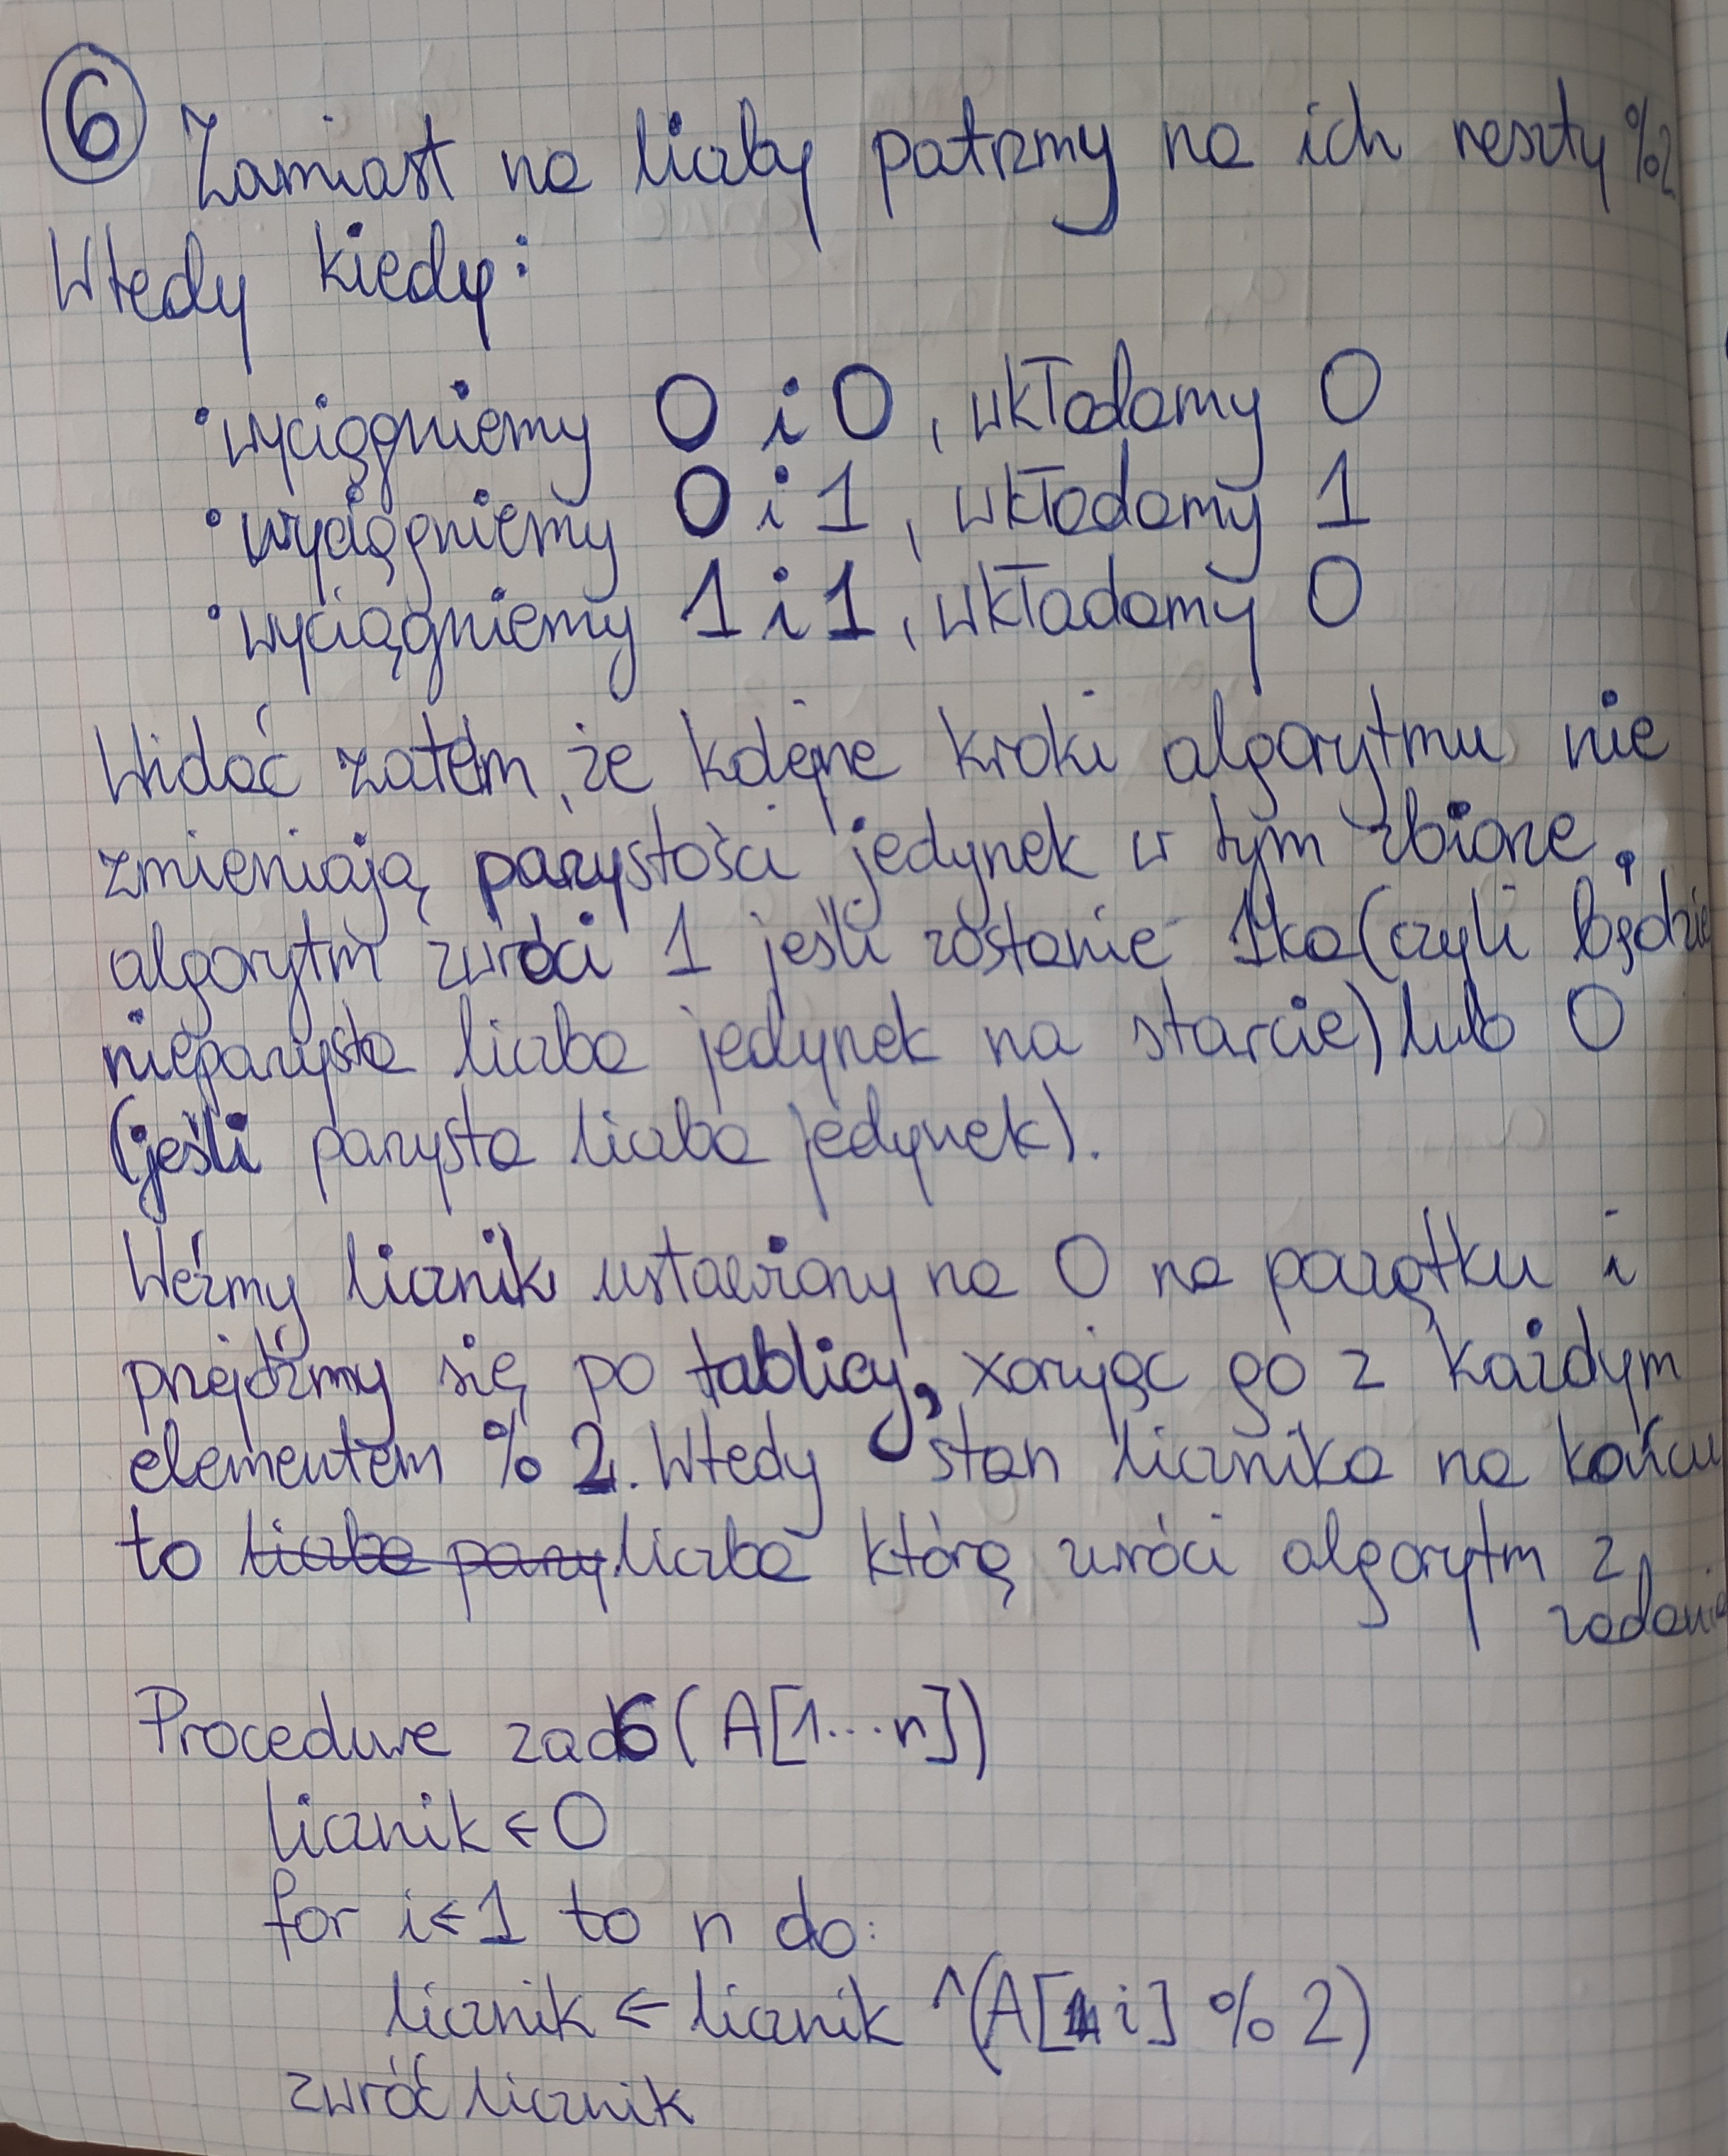 6 Zamiast na liczby patrzmy na ich reszty %2
Wtedy kiedy:
• wyciągniemy 0 i 0, wkładamy 0
• wyciągniemy 0 i 1, wkładamy 1
• wyciągniemy 1 i 1, wkładamy 0
Widać zatem, że kolejne kroki algorytmu nie
zmieniają parzystości jedynek w tym zbiorze.
algorytm zwróci 1 jeśli zostanie 1ka (czyli będzie
nieparzysta liczba jedynek na starcie) lub 0
(jeśli parzysta liczba jedynek).
Weźmy licznik ustawiony na 0 na początku i
przejdźmy się po tablicy, xorując go z każdym
elementem % 2. Wtedy stan licznika na końcu
to liczba którą zwróci algorytm z
zadania
Procedure zad6(A[1...n])
licznik ← 0
for i ← 1 to n do:
licznik ← licznik ^ (A[i] % 2)
zwróć licznik